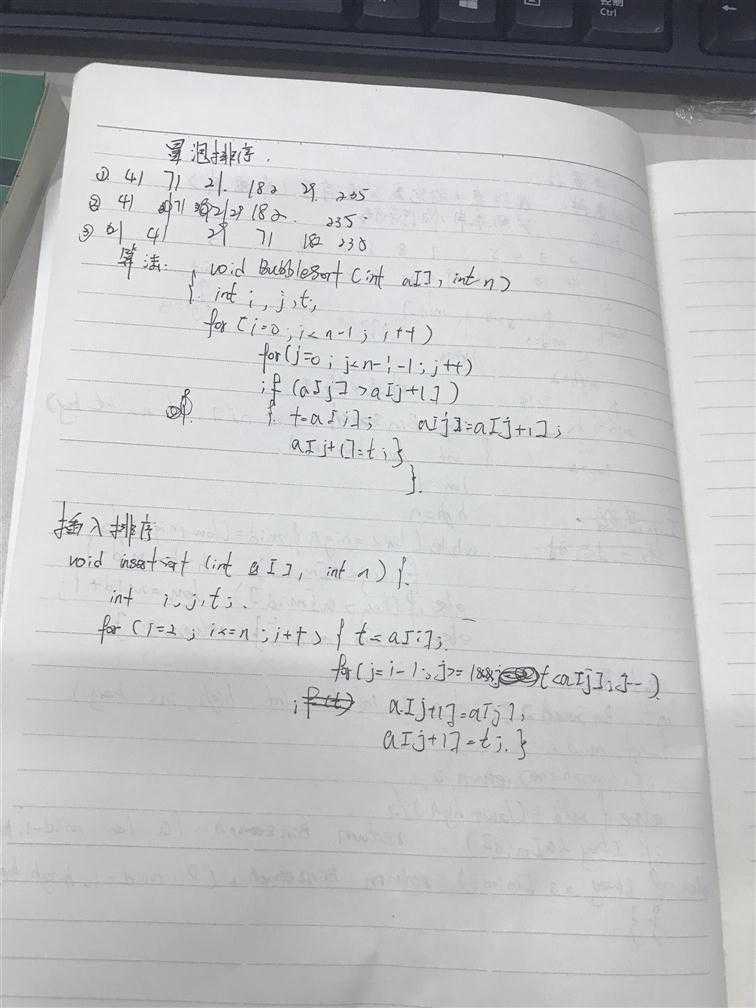 冒泡排序.
① 41 71 21. 182 29. 235
② 41 71 21 29 182. 235
③ 21 41 29 71 182 235
算法: void BubbleSort (int a[], int n)
{ int i, j, t;
for (i=0; i<n-1; i++)
for(j=0; j<n-i-1; j++)
if (a[j] >a[j+1])
{ t=a[j]; a[j]=a[j+1];
a[j+1]=t; }
}.
插入排序
void insertsort (int a[], int n) {.
int i, j, t;.
for (i=2; i<=n; i++) { t=a[i];
for(j=i-1; j>=1&& t<a[j]; j--)
a[j+1]=a[j];
a[j+1]=t; }